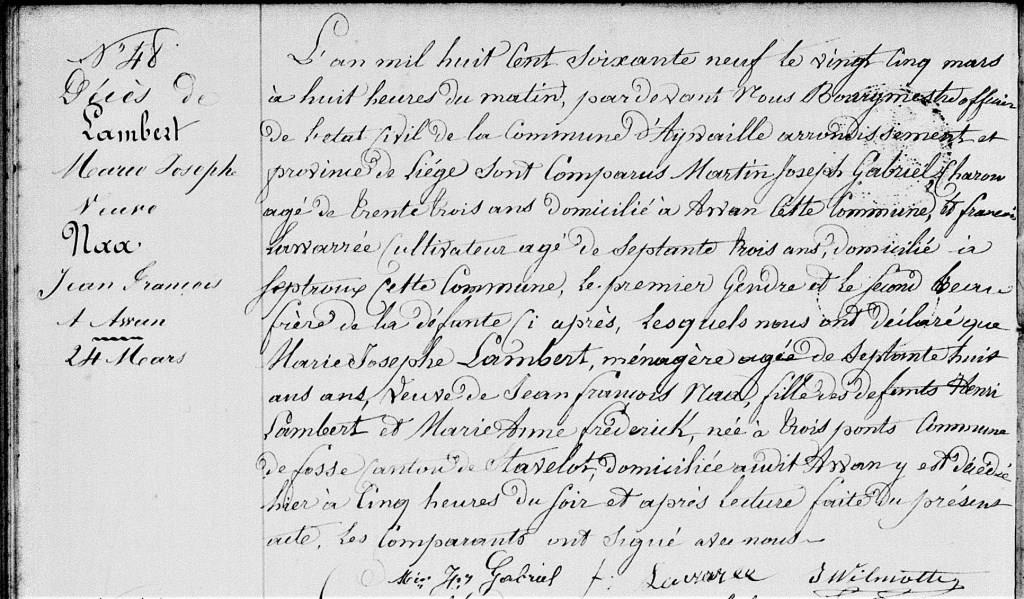 N° 48
Décès de
Lambert
Marie Josephe
Veuve
Nax
Jean François
A Awan
24 Mars
L'an mil huit Cent Soixante neuf le vingt Cinq mars
à huit heures du matin, pardevant Nous Bourgmestre officier
de l'etat Civil de la Commune d'Aywaille arrondissement et
province de Liége Sont Comparus Martin Joseph Gabriel, Charon
agé de trente trois ans domicilié à Awan Cette Commune, et françois
Lawarrée Cultivateur agé de Septante trois ans, domicilié à
Septroux Cette Commune, le premier Gendre et le Second beau
frère de la défunte Ci après, lesquels nous ont déclaré que
Marie Josephe Lambert, ménagère agée de Septante huit
ans ans, Veuve de Jean françois Nax, fille des defunts Henri
Lambert et Marie Anne frederick, née à trois ponts Commune
de fosse Canton de Stavelot, domiciliée audit Awan y est décédée
hier à Cinq heures du Soir et après lecture faite du présent
acte, les Comparants ont Signé avec nous
Gabriel f: Lawaree J Wilmotte